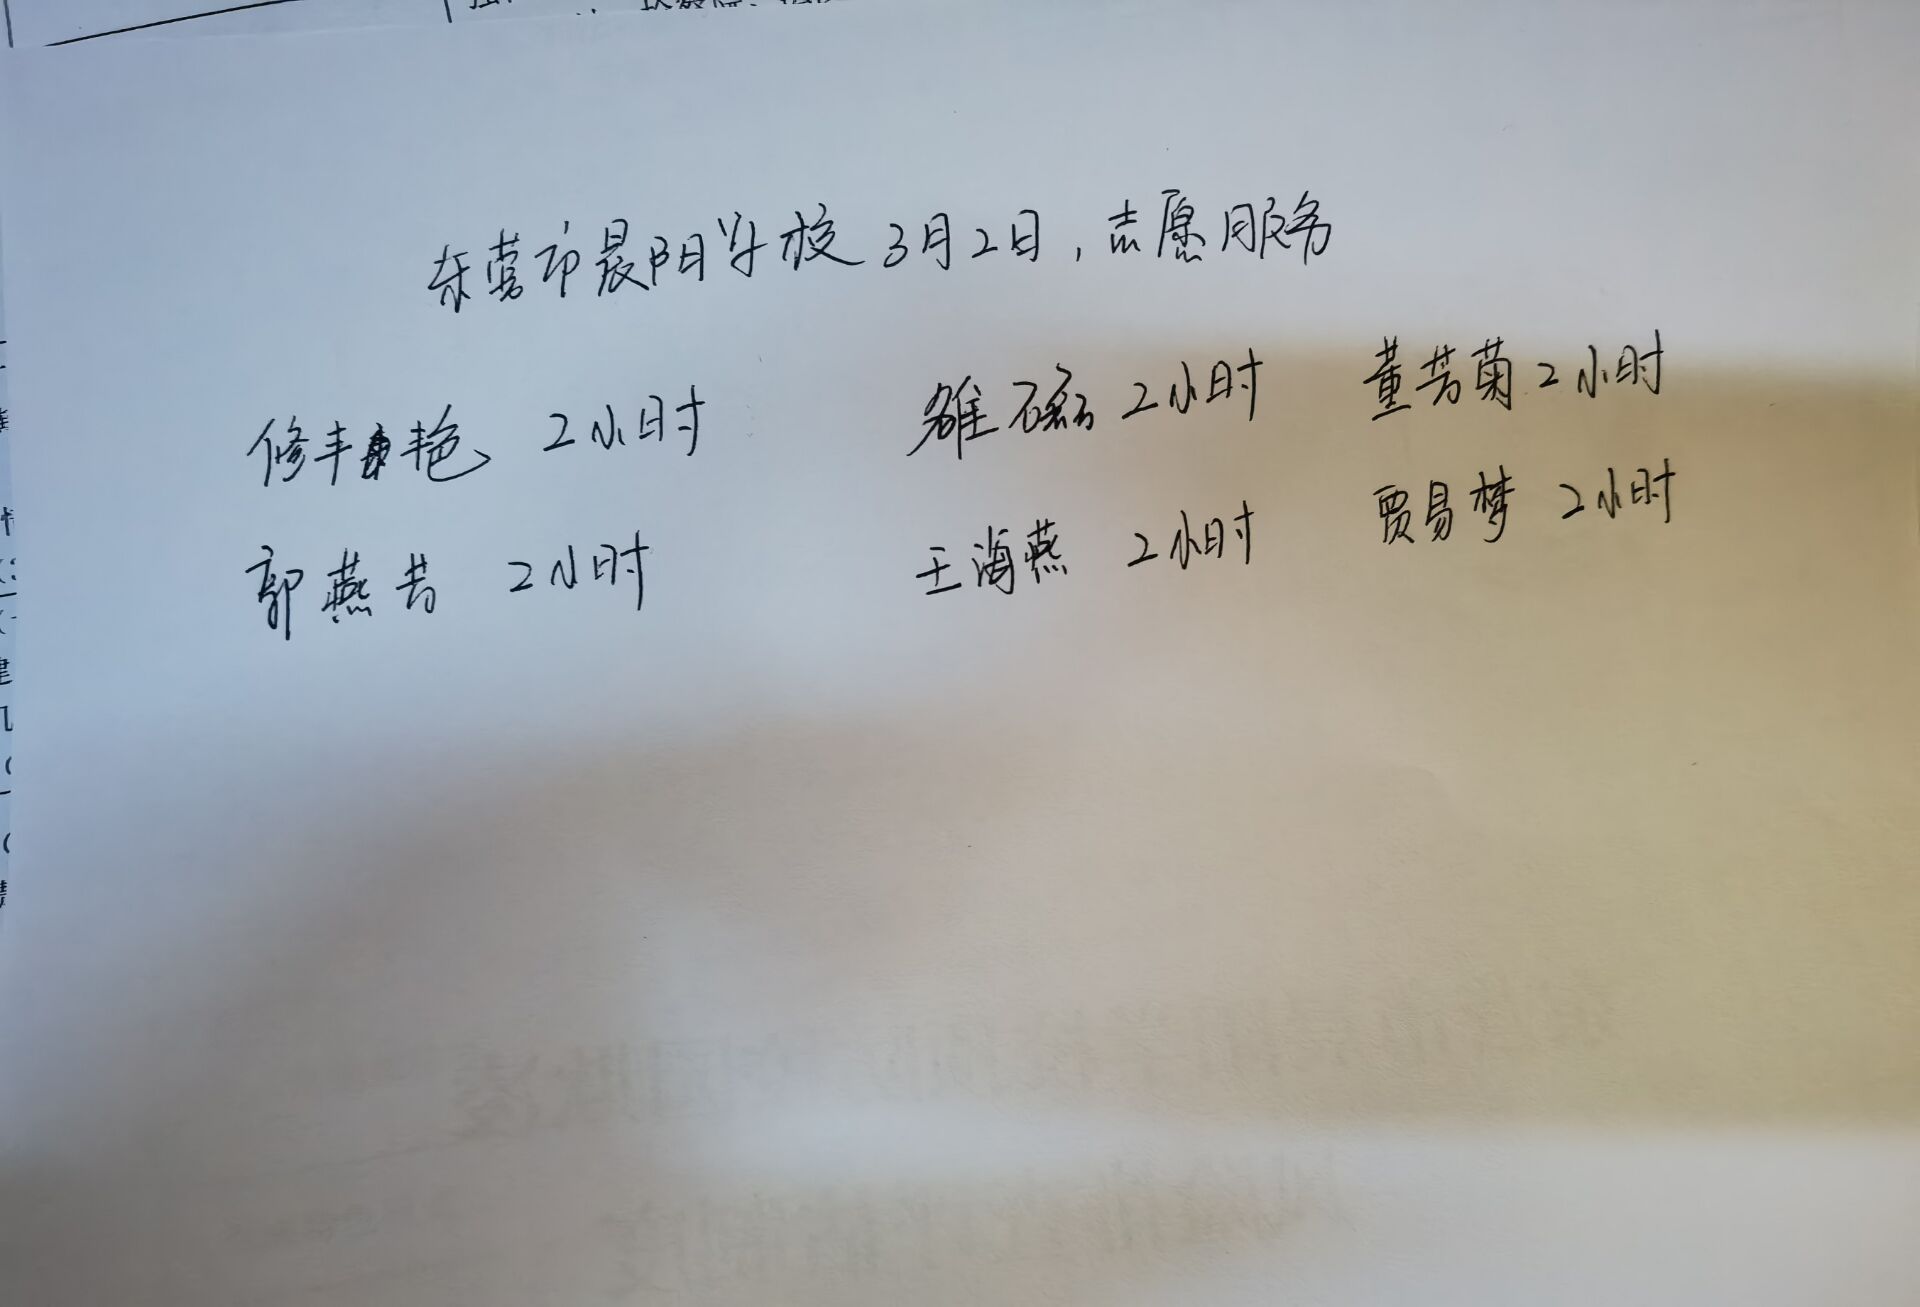 东营市晨阳学校3月2日，志愿服务
修丰艳 2小时 雒磊 2小时 董芳菊 2小时
郭燕芳 2小时 王海燕 2小时 贾易梦 2小时